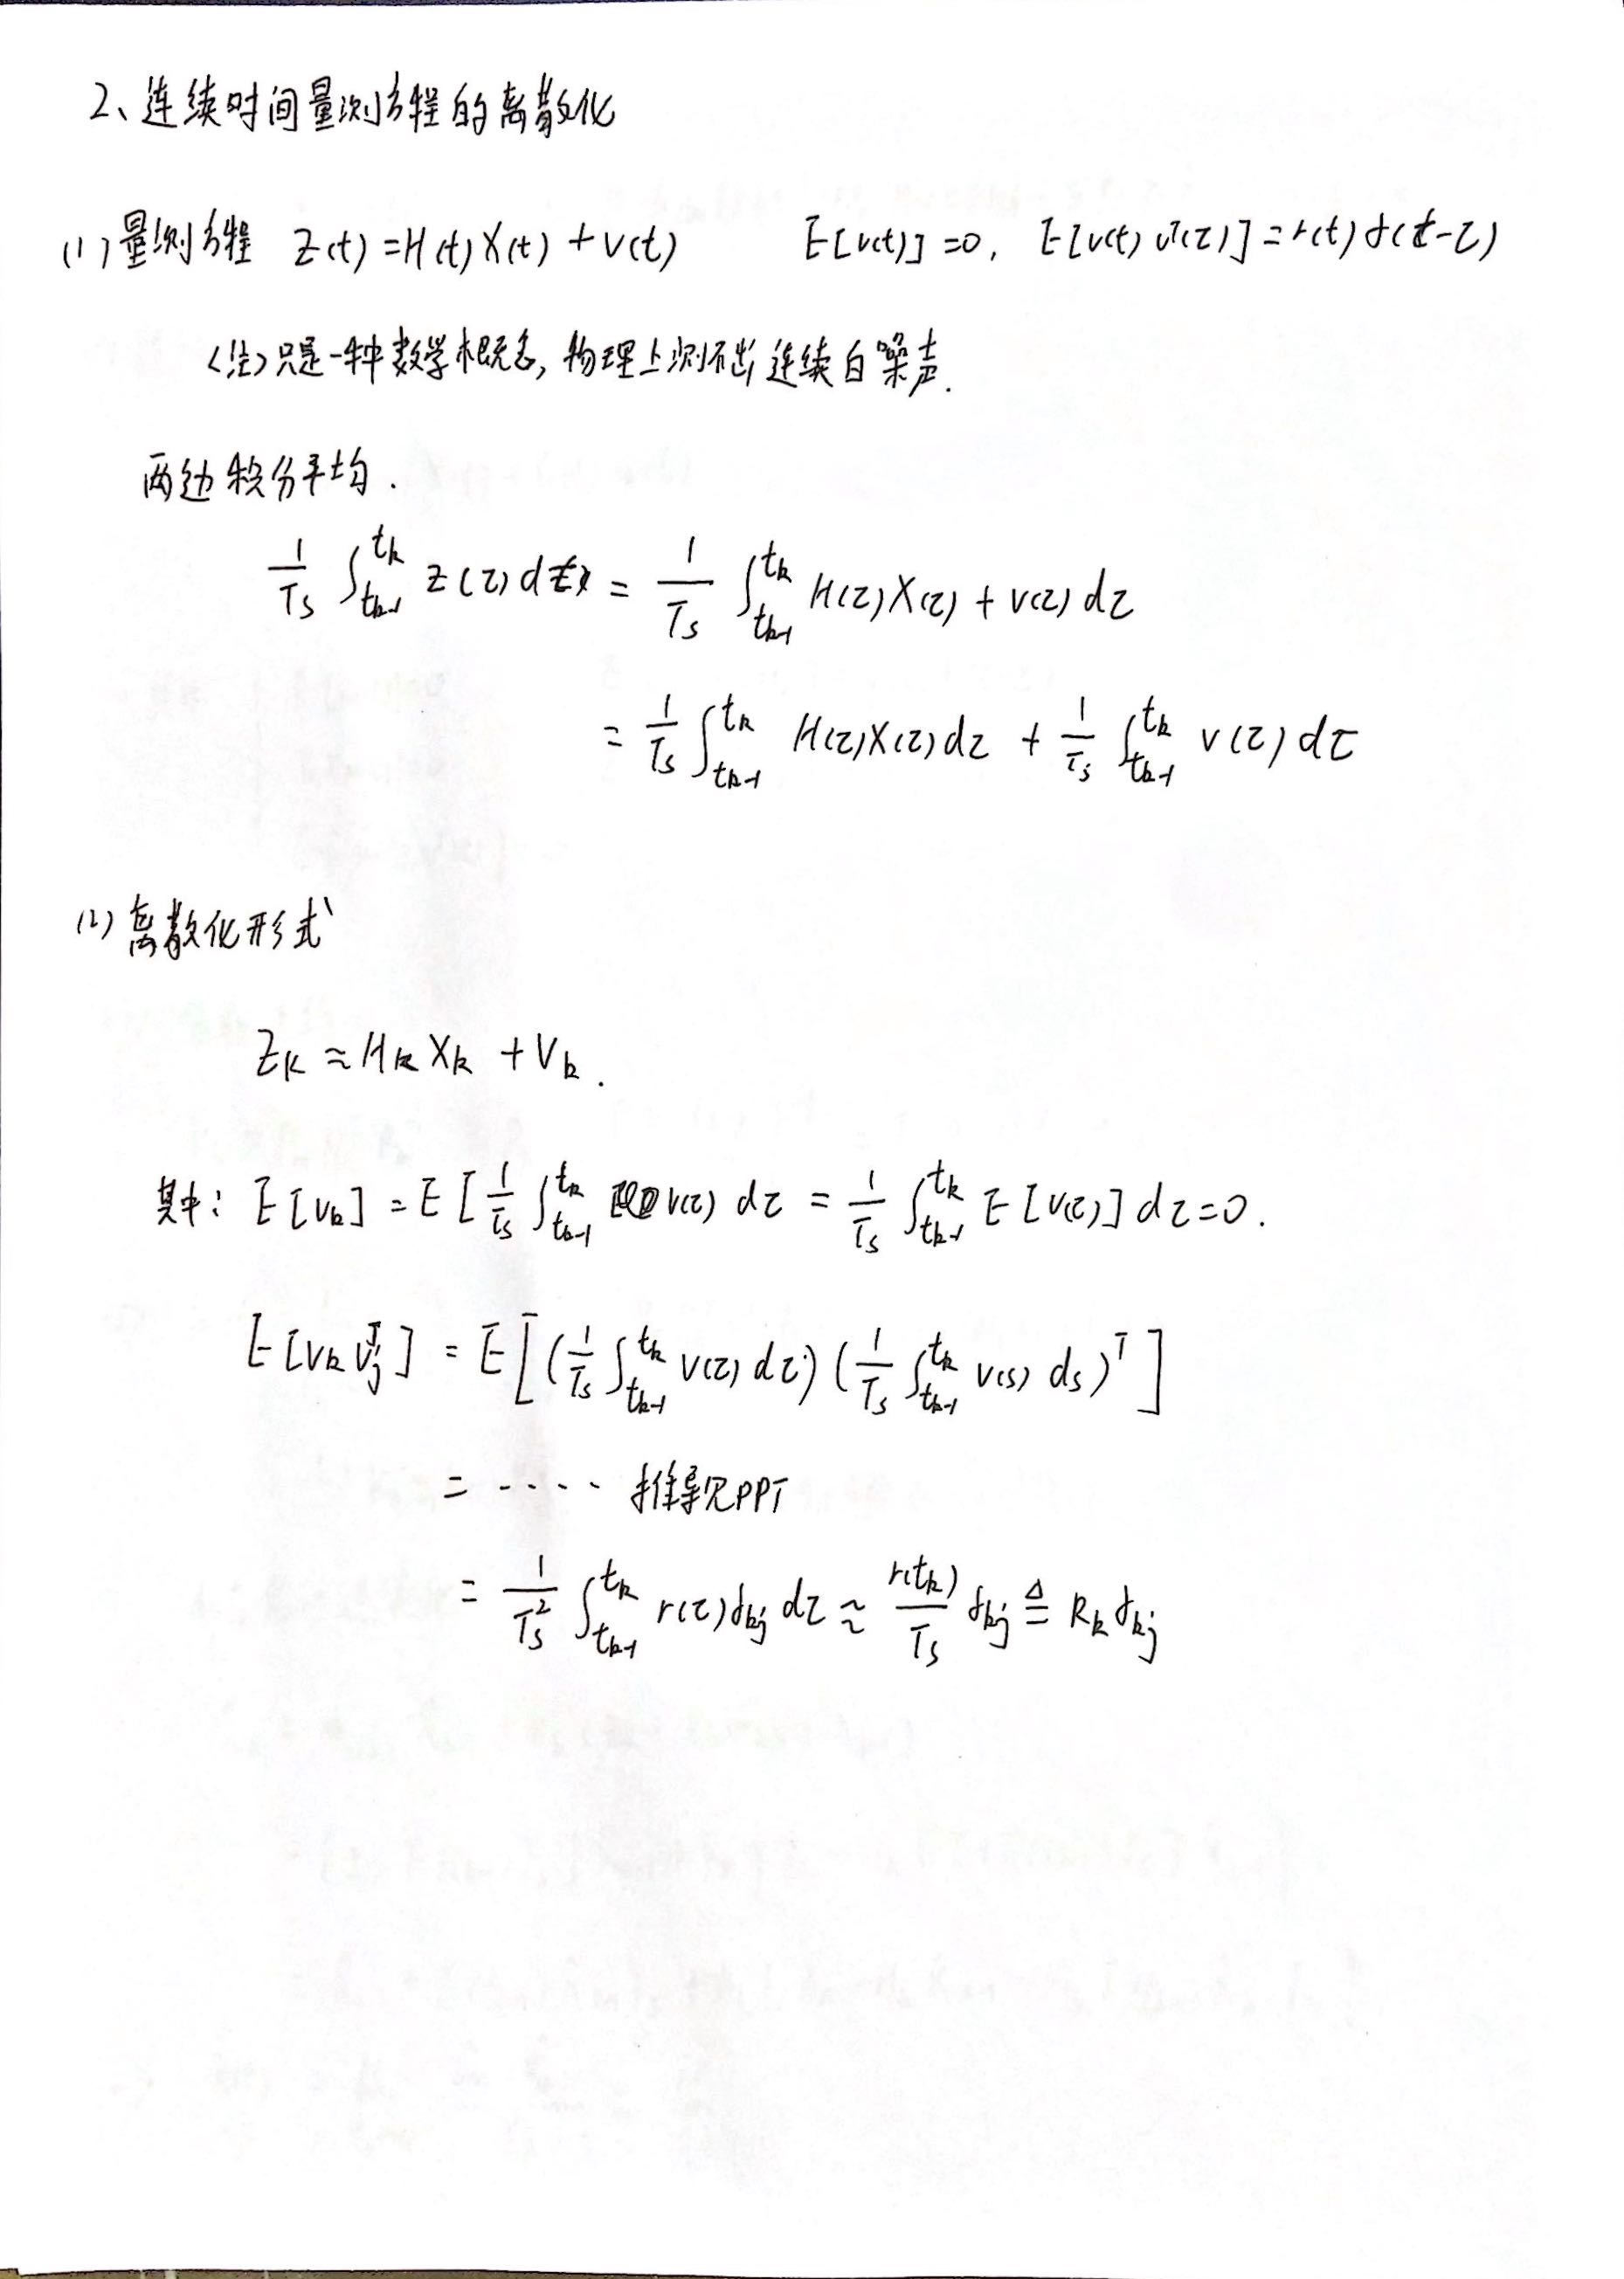 2、连续时间量测方程的离散化
(1) 量测方程 Z(t)=H(t)X(t)+V(t) E[v(t)]=0, E[v(t)vᵀ(τ)]=r(t)δ(t-τ)
<注>只是一种数学概念,物理上测不出连续白噪声.
两边积分平均.
1/Ts ∫_{t_{k-1}}^{t_k} Z(τ)dτ = 1/Ts ∫_{t_{k-1}}^{t_k} H(τ)X(τ)+V(τ)dτ
= 1/Ts ∫_{t_{k-1}}^{t_k} H(τ)X(τ)dτ + 1/Ts ∫_{t_{k-1}}^{t_k} V(τ)dτ
(2) 离散化形式
Z_k ≈ H_k X_k + V_k.
其中: E[V_k] = E[1/Ts ∫_{t_{k-1}}^{t_k} V(τ)dτ = 1/Ts ∫_{t_{k-1}}^{t_k} E[V(τ)]dτ=0.
E[V_k V_jᵀ] = E[(1/Ts ∫_{t_{k-1}}^{t_k} V(τ)dτ)(1/Ts ∫_{t_{k-1}}^{t_k} V(s)ds)ᵀ]
= ····· 推导见PPT
= 1/Ts² ∫_{t_{k-1}}^{t_k} r(τ)δ_kj dτ ≈ r(t_k)/Ts δ_kj ≜ R_k δ_kj